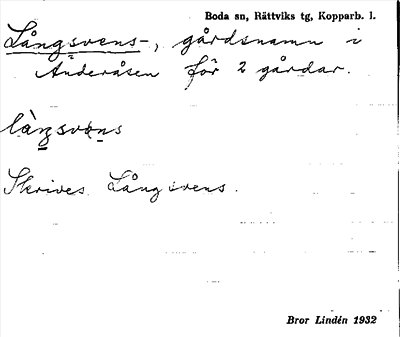 Boda sn, Rättviks tg, Kopparb. l.
Långsvens-, gårdsnamn i
Anderåsen för 2 gårdar.
làŋsvens
Skrives Långsvens.
Bror Lindén 1932